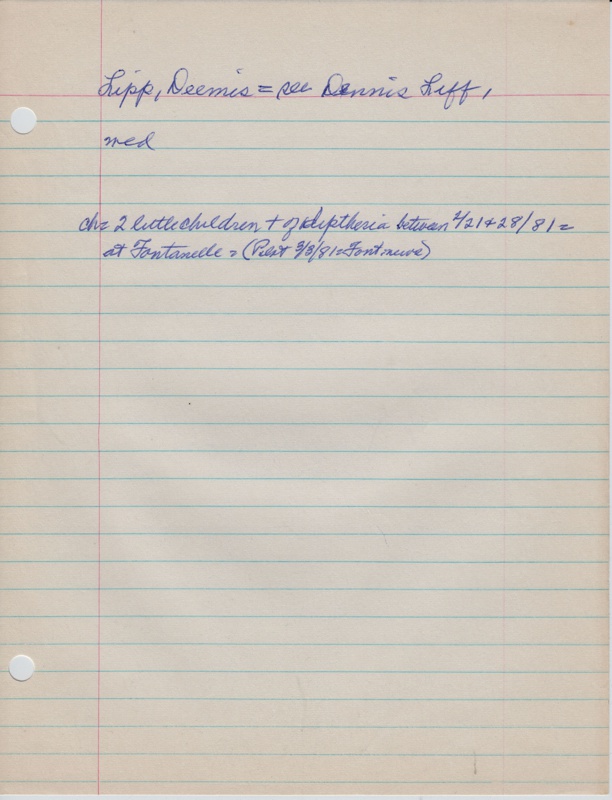 Lipp, Deemis = see Dennis Leff,
med
ch = 2 little children + of diptheria between 2/21 + 28/81 =
at Fontanelle = (Pilot 3/3/81 = Font news)